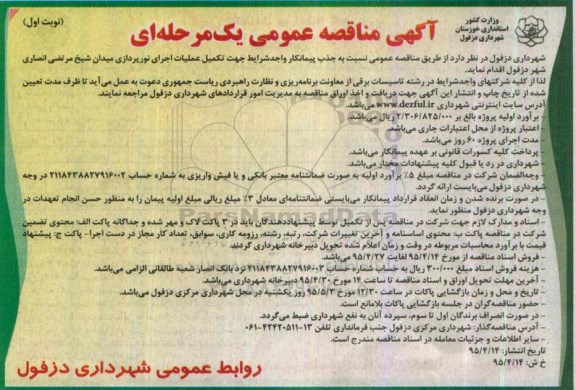 (نوبت اول)
وزارت کشور
استانداری خوزستان
شهرداری دزفول
آگهی مناقصه عمومی یک‌مرحله‌ای
شهرداری دزفول در نظر دارد از طریق مناقصه عمومی نسبت به جذب پیمانکار واجدشرایط جهت تکمیل عملیات اجرای نورپردازی میدان شیخ مرتضی انصاری
شهر دزفول اقدام نماید.
لذا از کلیه شرکتهای واجدشرایط در رشته تاسیسات برقی از معاونت برنامه‌ریزی و نظارت راهبردی ریاست جمهوری دعوت به عمل می‌آید تا ظرف مدت تعیین
شده از تاریخ چاپ و انتشار این آگهی جهت دریافت و اخذ اوراق مناقصه به مدیریت امور قراردادهای شهرداری دزفول مراجعه نمایند.
آدرس سایت اینترنتی شهرداری www.dezful.ir می‌باشد.
- برآورد اولیه پروژه بالغ بر ۲/۳۰۶/۸۲۵/۰۰۰ ریال می‌باشد.
- اعتبار پروژه از محل اعتبارات جاری می‌باشد.
- مدت اجرای پروژه ۶۰ روز می‌باشد.
- پرداخت کلیه کسورات قانونی بر عهده پیمانکار می‌باشد.
- شهرداری در رد یا قبول کلیه پیشنهادات مختار می‌باشد.
- وجه‌الضمان شرکت در مناقصه مبلغ ۵٪ برآورد اولیه به صورت ضمانتنامه معتبر بانکی و یا فیش واریزی به شماره حساب ۲۱۱۸۴۳۸۸۲۷۹۱۶۰۰۲ در وجه
شهرداری دزفول می‌بایست ارائه گردد.
- در صورت برنده شدن و زمان انعقاد قرارداد پیمانکار می‌بایستی ضمانتنامه‌ای معادل ۳٪ مبلغ ریالی مبلغ اولیه پیمان را به منظور حسن انجام تعهدات در
وجه شهرداری دزفول منظور نماید.
- اسناد و مدارک لازم جهت شرکت در مناقصه پس از تکمیل توسط پیشنهاددهندگان باید در ۳ پاکت لاک و مهر شده و جداگانه پاکت الف: محتوی تضمین
شرکت در مناقصه پاکت ب: محتوی اساسنامه و آخرین تغییرات شرکت، رتبه، رشته، رزومه کاری، سوابق، تعداد کار مجاز در دست اجرا- پاکت ج: پیشنهاد
قیمت با برآورد محاسبات مربوطه در وقت و زمان اعلام شده تحویل دبیرخانه شهرداری گردند.
- فروش اسناد مناقصه از مورخ ۹۵/۴/۱۴ لغایت ۹۵/۴/۲۷ می‌باشد.
- هزینه فروش اسناد مبلغ ۳۰۰/۰۰۰ ریال به حساب شماره حساب ۲۱۱۸۴۳۸۸۲۷۹۱۶۰۰۳ نزد بانک انصار شعبه طالقانی الزامی می‌باشد.
- آخرین مهلت تحویل اوراق و اسناد مناقصه تا ساعت ۱۴ مورخ ۹۵/۴/۳۰ دبیرخانه شهرداری می‌باشد.
- تاریخ و محل و زمان بازگشایی پاکات در ساعت ۱۲/۳۰ مورخ ۹۵/۵/۳ روز یکشنبه در محل شهرداری مرکزی دزفول می‌باشد.
- حضور مناقصه‌گران در جلسه بازگشایی پاکات بلامانع است.
- در صورت انصراف برندگان اول تا سوم، سپرده آنان به نفع شهرداری ضبط می‌گردد.
- آدرس مناقصه‌گذار: شهرداری مرکزی دزفول جنب فرمانداری تلفن ۱۳-۴۲۴۲۰۵۱۱-۰۶۱
- سایر اطلاعات و جزئیات معامله در اسناد مناقصه مندرج است.
تاریخ انتشار: ۹۵/۴/۱۴
خ ش: ۹۵/۴/۱۴
روابط عمومی شهرداری دزفول